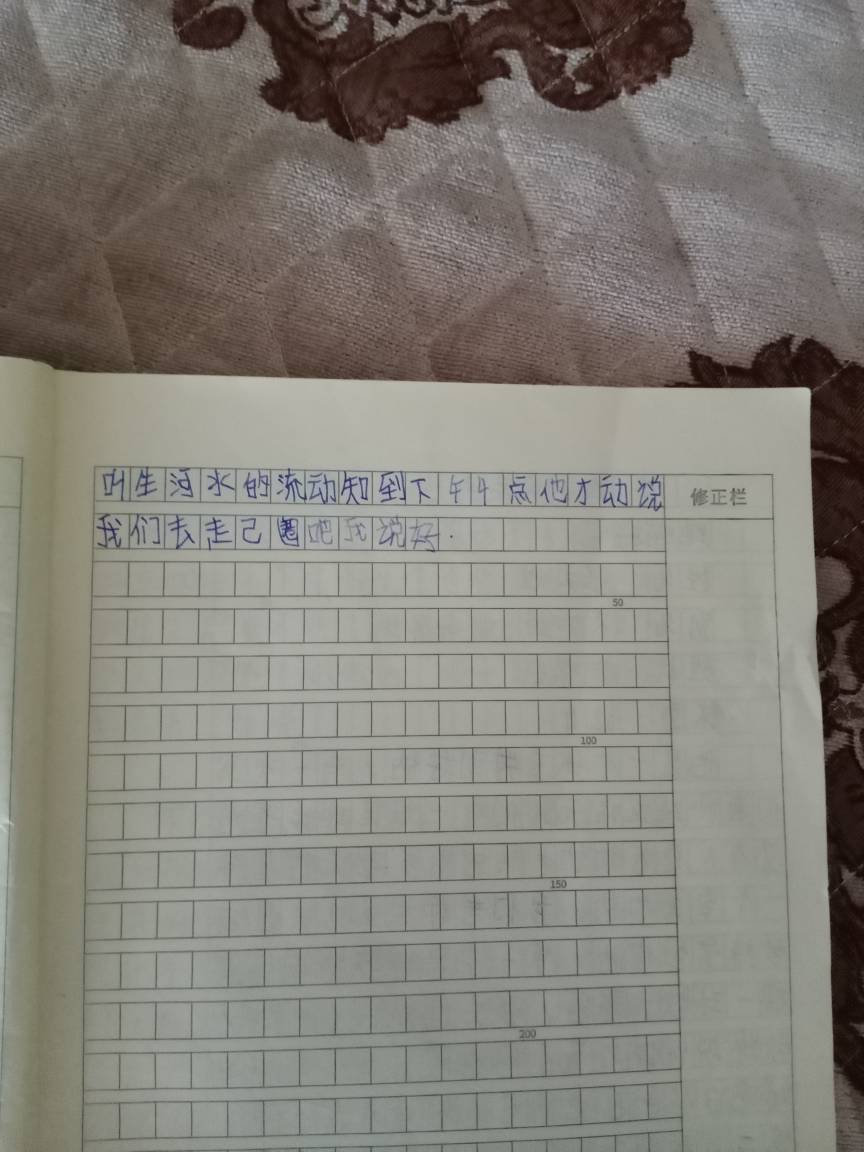 叫生河水的流动知到下午4点他才动说 修正栏
我们去走己圈吧我说好.
50
100
150
200